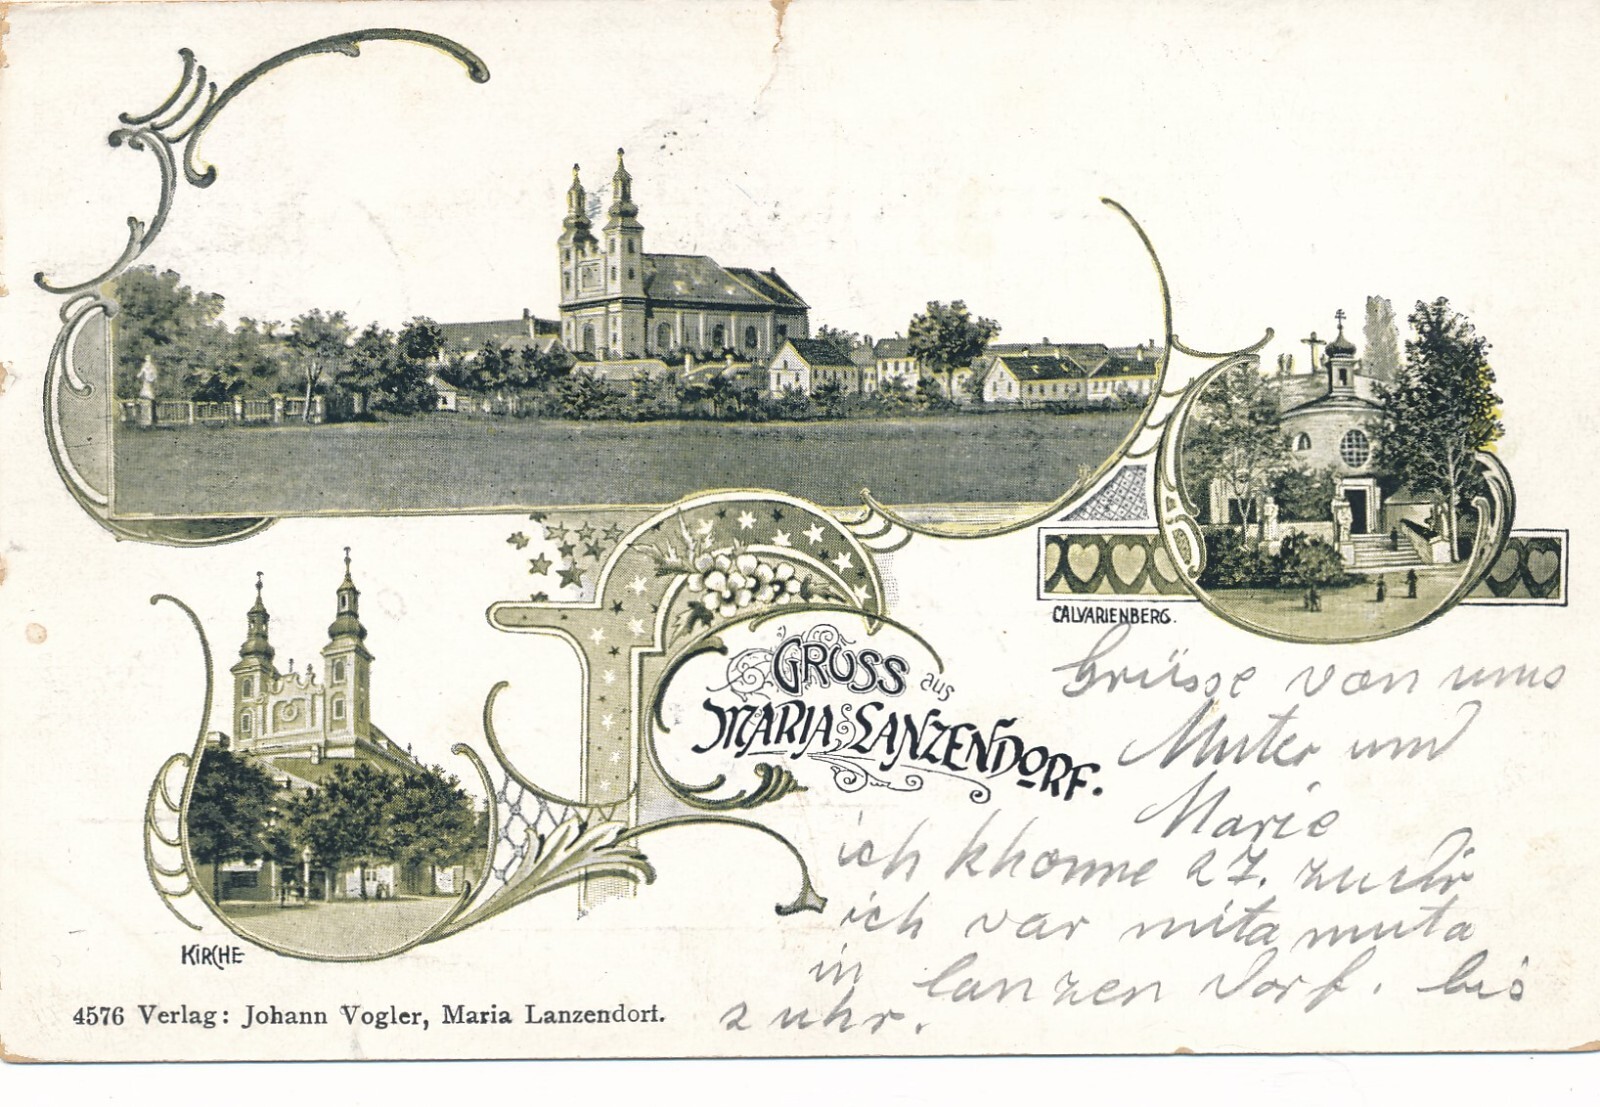 CALVARIENBERG.
GRUSS aus
MARIA LANZENDORF.
KIRCHE
4576 Verlag: Johann Vogler, Maria Lanzendorf.
Grüsse von uns
Muter und
Marie
ich khomme 27. zu dir
ich var mita muta
in lanzen dorf. bis
2 uhr.